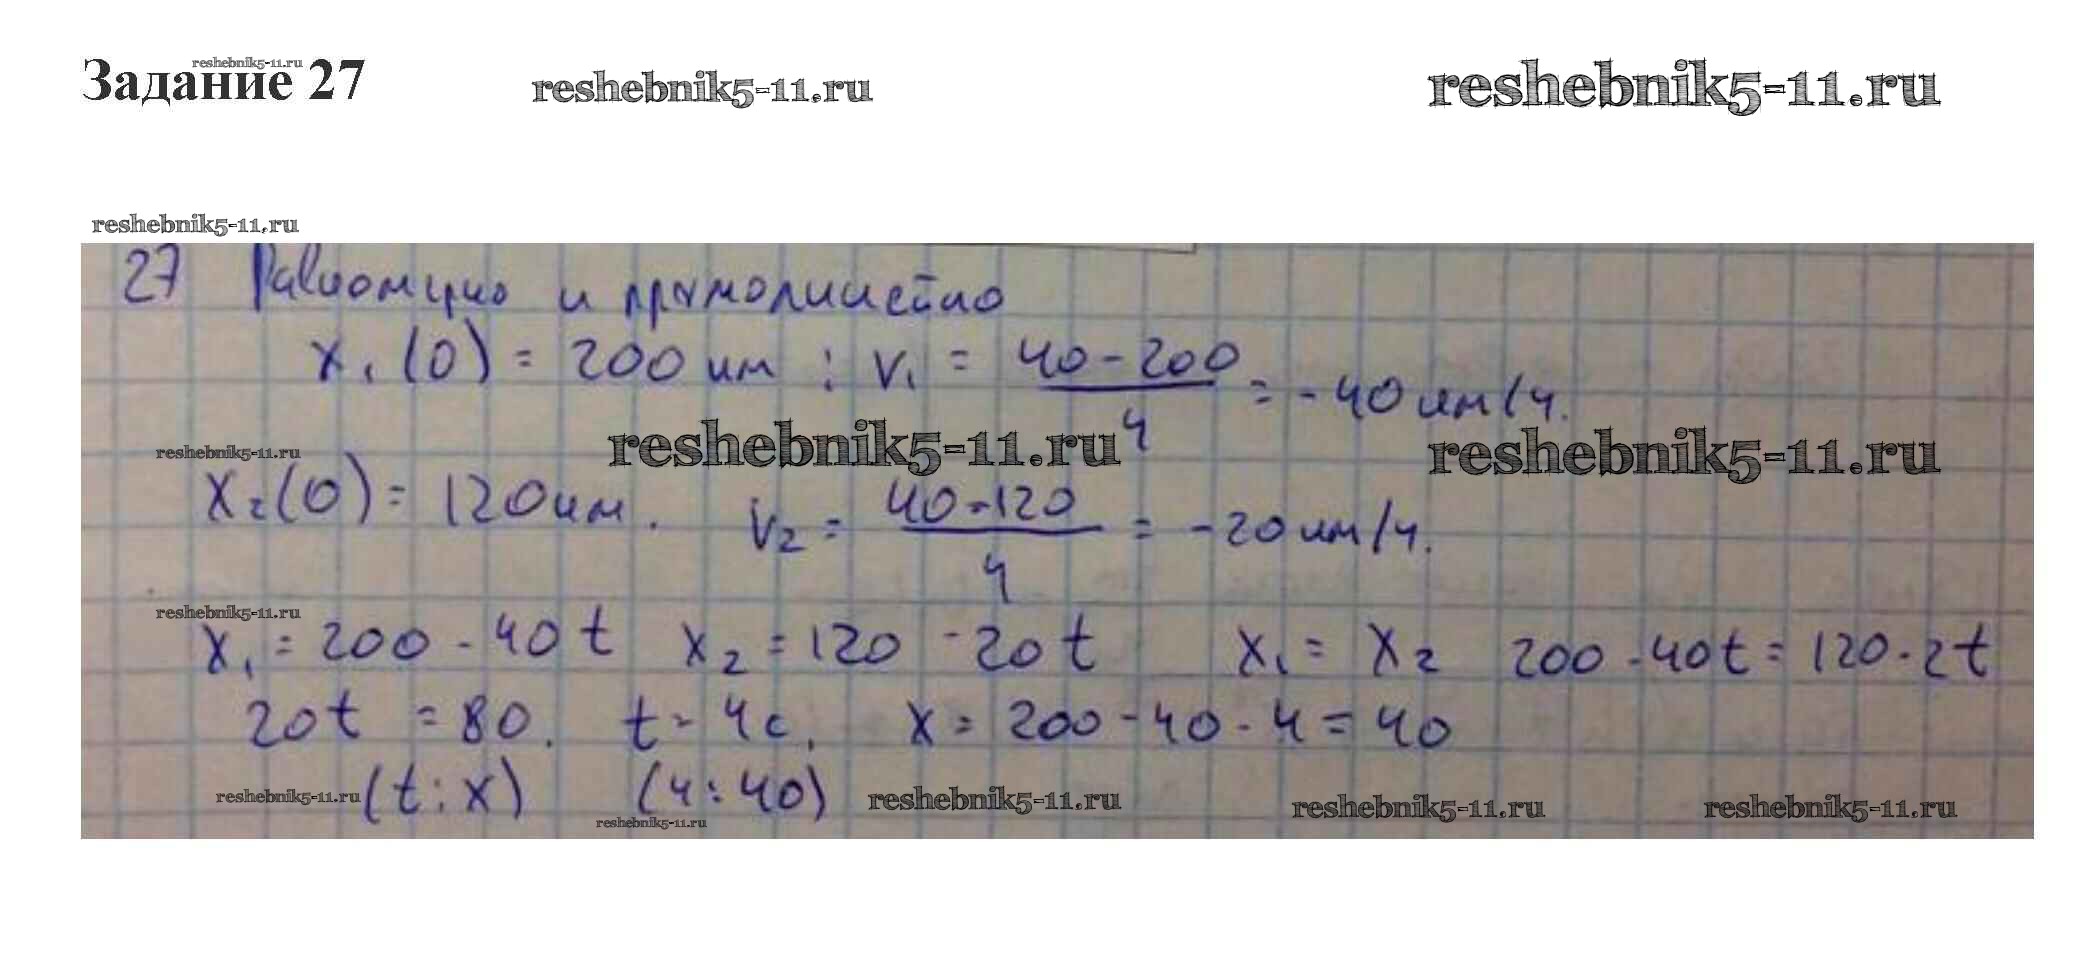 Задание 27
reshebnik5-11.ru
reshebnik5-11.ru
reshebnik5-11.ru
reshebnik5-11.ru
27 Равномерно и прямолинейно
x₁(0) = 200 км ; v₁ = 40-200 / 4 = -40 км/ч.
reshebnik5-11.ru
reshebnik5-11.ru
reshebnik5-11.ru
x₂(0) = 120 км. v₂ = 40-120 / 4 = -20 км/ч.
reshebnik5-11.ru
x₁ = 200 - 40t x₂ = 120 - 20t x₁ = x₂ 200 - 40t = 120 - 2t
20t = 80. t = 4с. x = 200 - 40 · 4 = 40
reshebnik5-11.ru (t; x) (4; 40) reshebnik5-11.ru
reshebnik5-11.ru
reshebnik5-11.ru
reshebnik5-11.ru